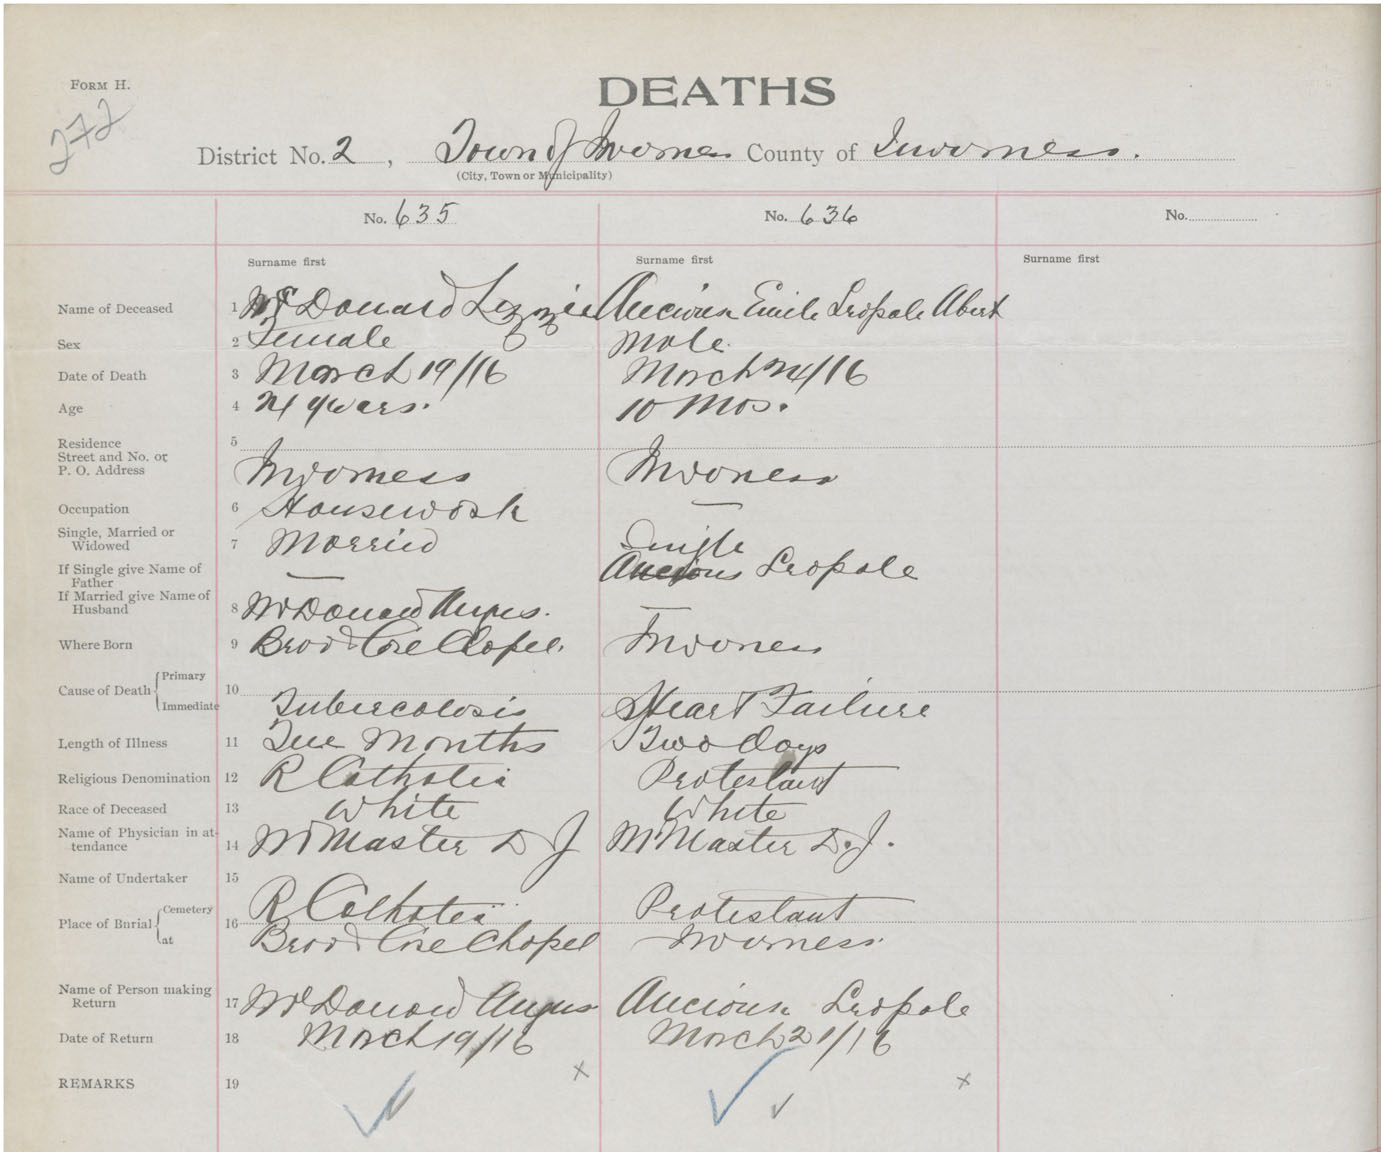 FORM H.
DEATHS
272
District No. 2, Town of Inverness County of Inverness.
(City, Town or Municipality)
No. 635 No. 636 No.
Surname first Surname first Surname first
Name of Deceased 1 McDonald Lizzie Emile Leopole Abert
Sex 2 Female Male.
Date of Death 3 March 19/16 March /16
Age 4 years. 10 Mos.
Residence 5
Street and No. or
P. O. Address Inverness Inverness
Occupation 6 Housework —
Single, Married or
Widowed 7 Married Single
If Single give Name of
Father — Leopole
If Married give Name of
Husband 8 McDonald Angus. —
Where Born 9 Broad Cove Chapel. Inverness
Cause of Death { Primary 10
Immediate Tubercolosis Heart Failure
Length of Illness 11 Months Two Days
Religious Denomination 12 R Catholic Protestant
Race of Deceased 13 White White
Name of Physician in at-
tendance 14 McMaster D J McMaster D. J.
Name of Undertaker 15
Place of Burial { Cemetery 16 R Catholic Protestant
at Broad Cove Chapel Inverness.
Name of Person making
Return 17 McDonald Angus Leopole
Date of Return 18 March 19/16 March 21/16
REMARKS 19